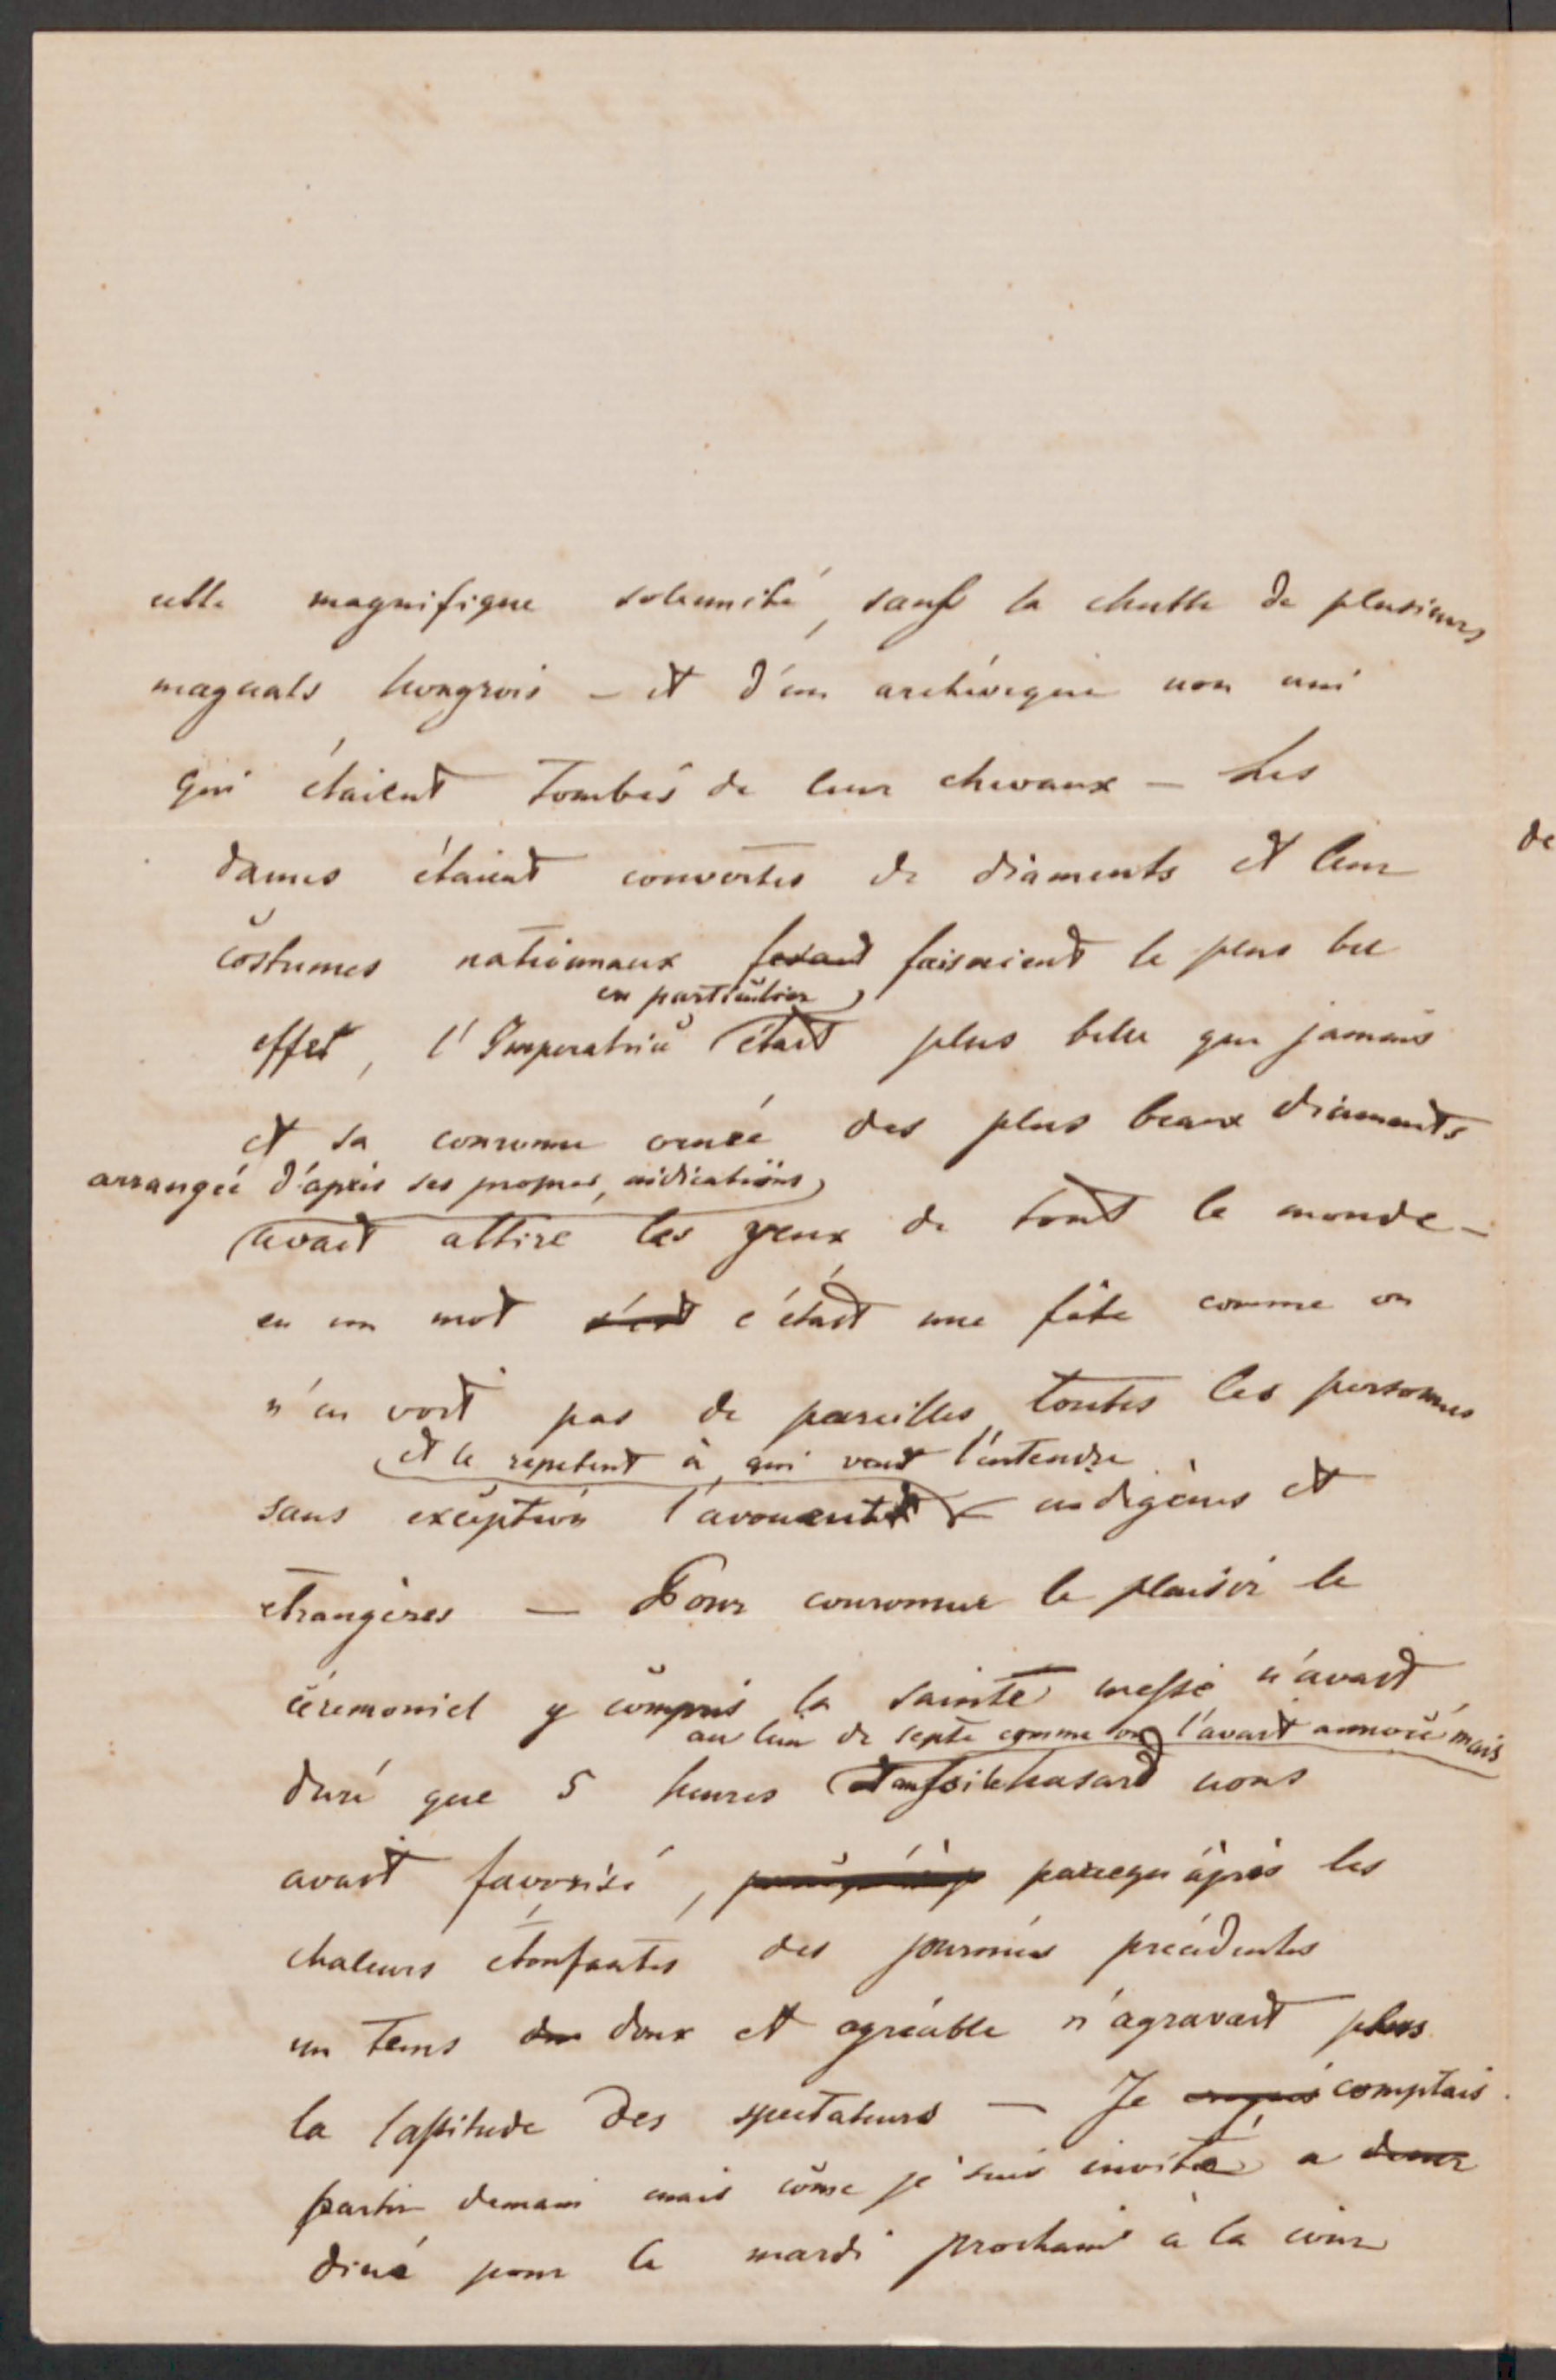 cette magnifique solemnité, sauf la chutte de plusieurs
magnats hongrois – et d'un archévêque non uni
qui étaient tombés de leur chevaux – Les
dames étaient couvertes de diaments et leur
costumes nationnaux faisaient le plus bel
en particulier
effet, l'Imperatrice était plus belle que jamais
et sa couronne ornée des plus beaux diaments
arrangée d'après ses propres indications
avait attiré les yeux de tout le monde –
en un mot c'était une fête comme on
n'en voit pas de pareilles, toutes les personnes
et le repetent à qui veut l'entendre
sans exception l'avouent – indigènes et
etrangères – Pour couronner le plaisir le
céremoniel y compris la sainte messe n'avait
au lieu de septe comme on l'avait annoncé mais
duré que 5 heures et aussi le hasard nous
avait favorisé, parcequ'après les
chaleurs étoufantes des journées précédentes
un tems doux et agréable n'agravait plus
la lassitude des spectateurs – Je comptais
partir demain mais come je suis invité a
diné pour le mardi prochain à la cour
de